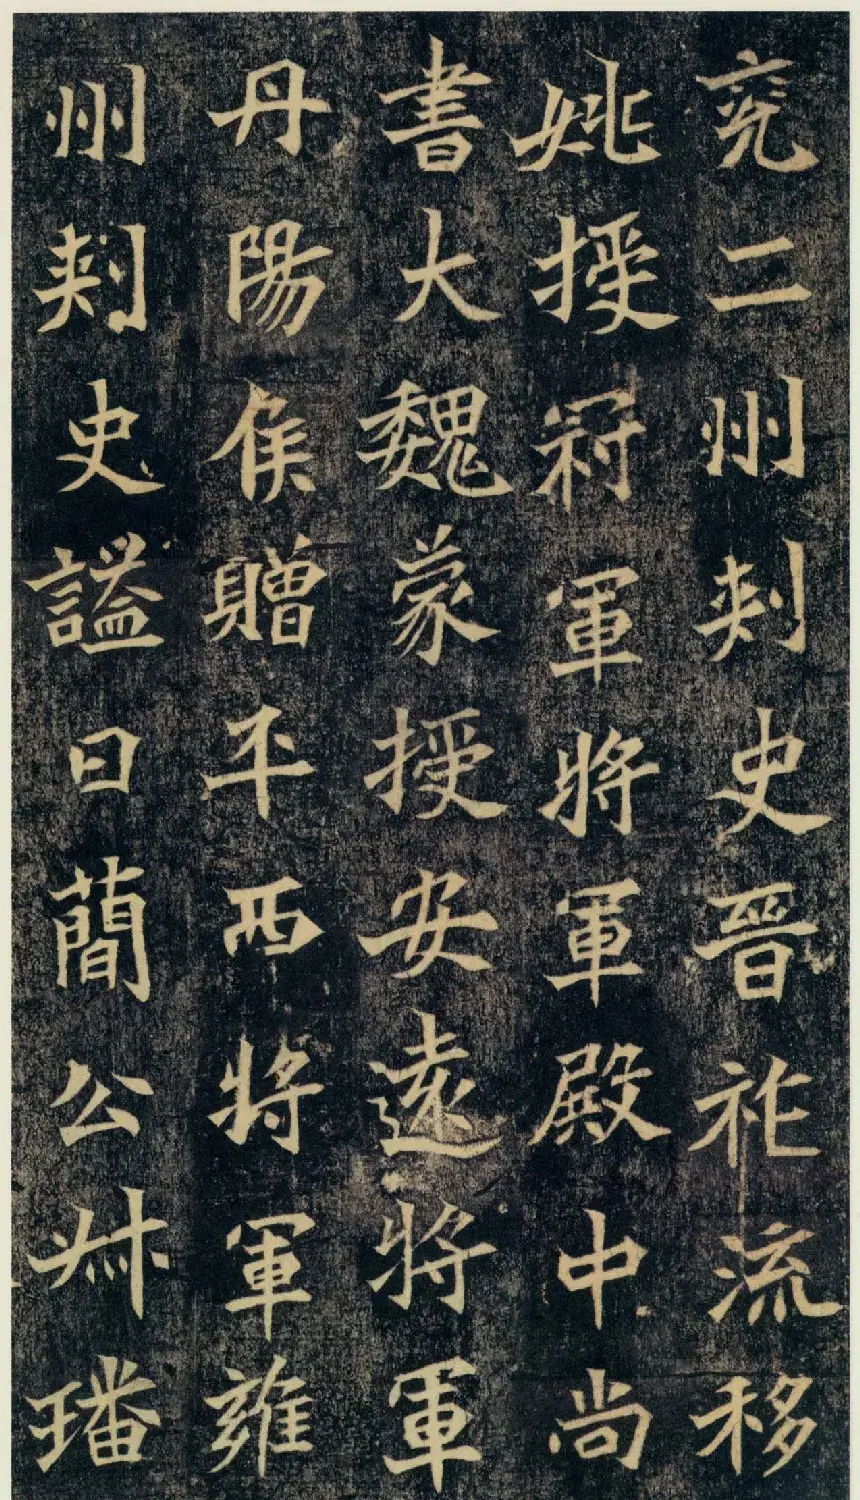 兖二州刺史晉祚流移
姚授冠軍將軍殿中尚
書大魏蒙授安遠將軍
丹陽侯贈平西將軍雍
州刺史謚曰簡公叔璠